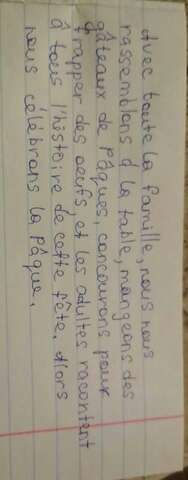 Avec toute la famille, nous nous
rassemblons à la table, mangeons des
gâteaux de Pâques, concourons pour
frapper des oeufs et les adultes racontent
à tous l'histoire de cette fête. Alors
nous célébrons la Pâque.